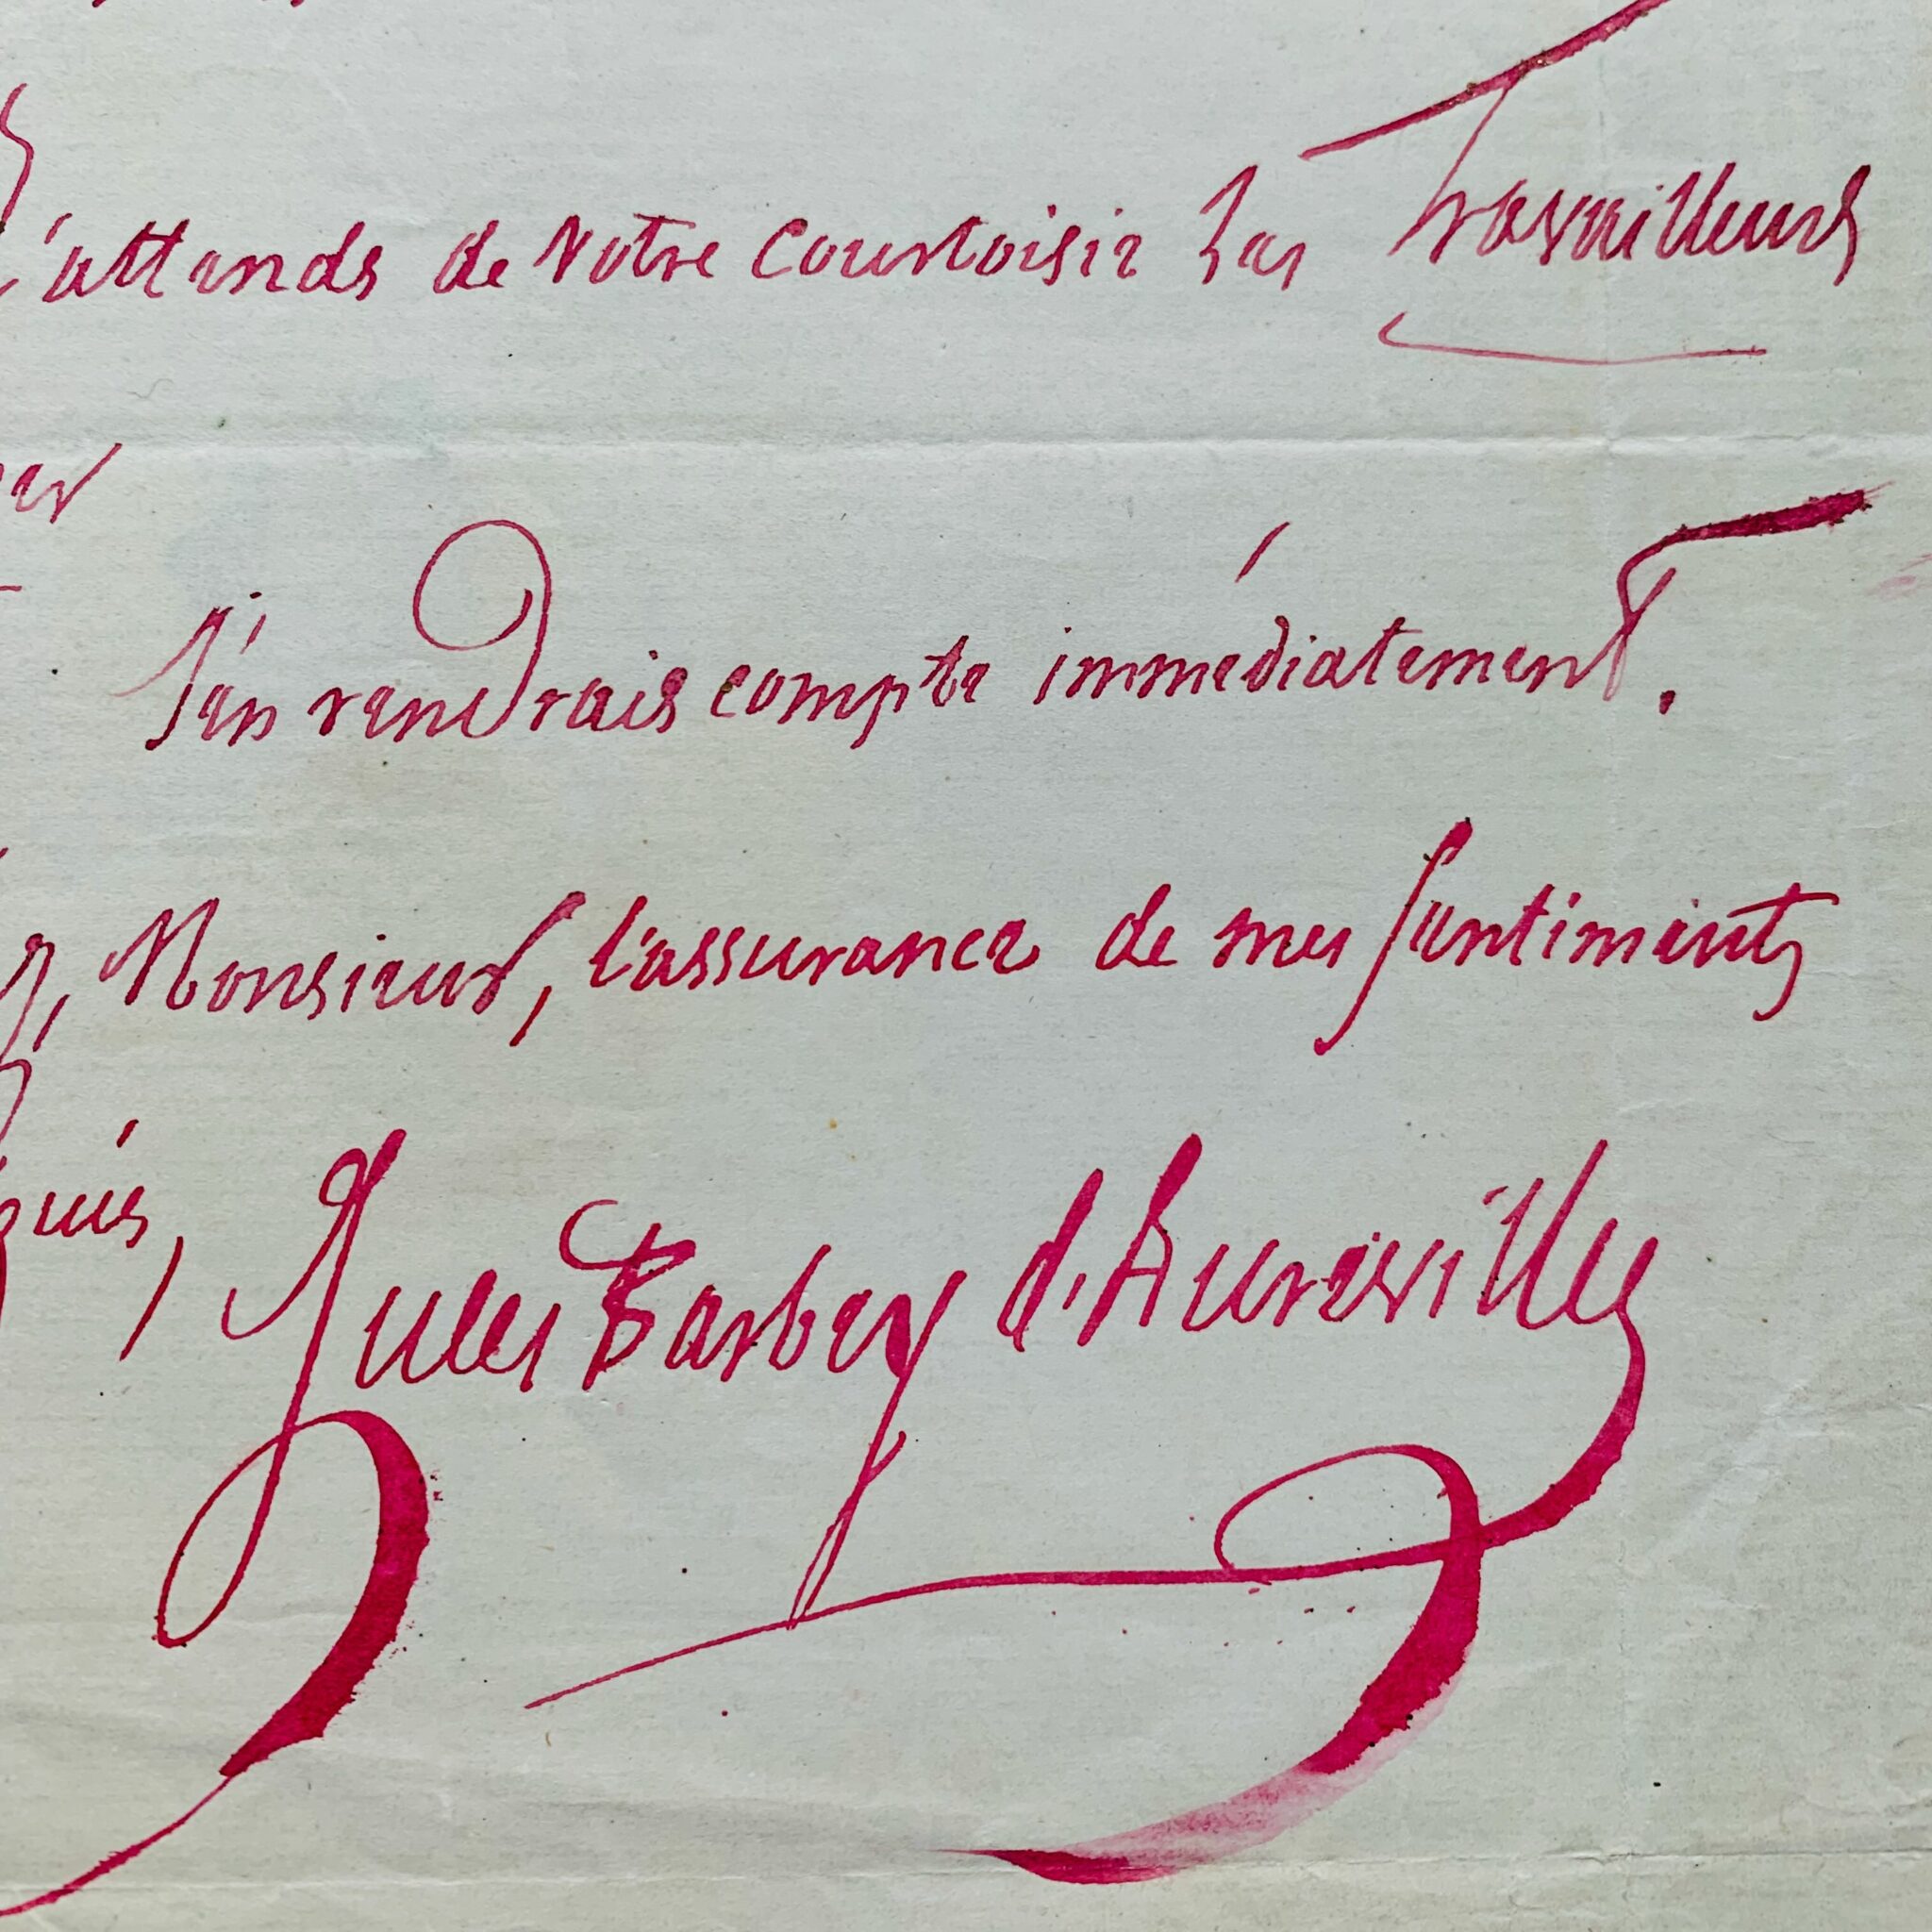 J'attends de Votre Courtoisie Les Travailleurs
mer
J'en rendrais compte immédiatement.
Monsieur, l'assurance de mes Sentiments
Jules Barbey d'Aurevilly